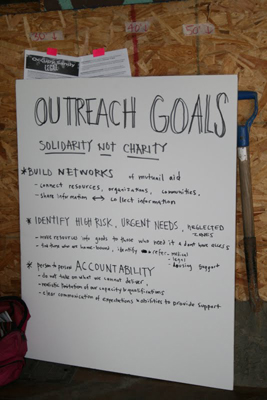 OUTREACH GOALS
SOLIDARITY NOT CHARITY
* BUILD NETWORKS of mutual aid
- connect resources, organizations, communities,
- share information ↔ collect information
* IDENTIFY HIGH RISK, URGENT NEEDS, NEGLECTED ZONES
- move resources into goods to those who need it & don't have access
- for those who are home-bound, identify refer - medical
- legal
- housing support
* person to person ACCOUNTABILITY
- do not take on what we cannot deliver,
- realistic limitation of our capacity & qualifications
- clear communication of expectations & abilities to provide support